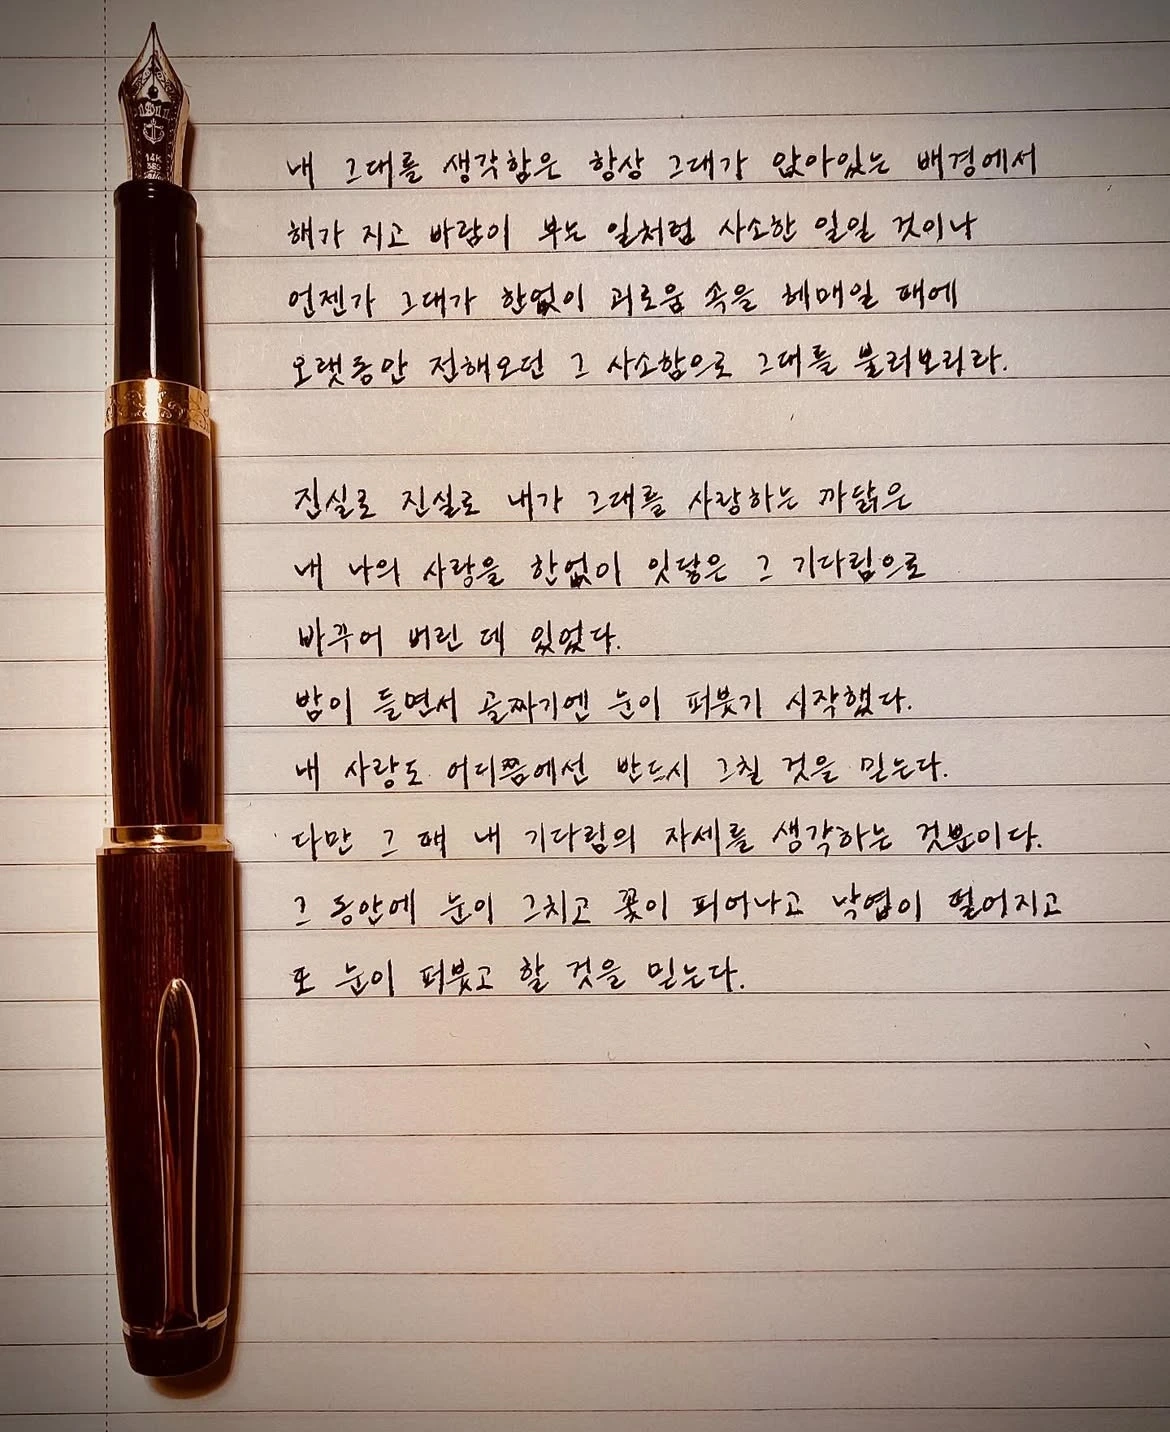 14K
585
내 그대를 생각함은 항상 그대가 앉아있는 배경에서
해가 지고 바람이 부는 일처럼 사소한 일일 것이나
언젠가 그대가 한없이 괴로움 속을 헤매일 때에
오랫동안 전해오던 그 사소함으로 그대를 불러보리라.
진실로 진실로 내가 그대를 사랑하는 까닭은
내 나의 사랑을 한없이 잇닿은 그 기다림으로
바꾸어 버린 데 있었다.
밤이 들면서 골짜기엔 눈이 퍼붓기 시작했다.
내 사랑도 어디쯤에선 반드시 그칠 것을 믿는다.
다만 그 때 내 기다림의 자세를 생각하는 것뿐이다.
그 동안에 눈이 그치고 꽃이 피어나고 낙엽이 떨어지고
또 눈이 퍼붓고 할 것을 믿는다.